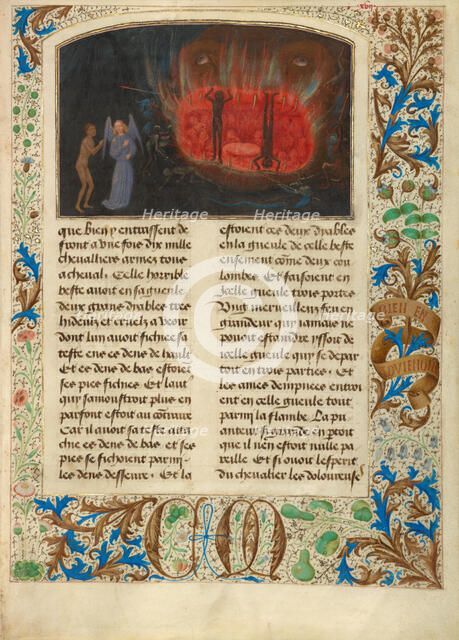 xvii
que bien y entraissent de
front a une fois dix mille
chevalliers armez tous
a cheval / Celle horrible
beste avoit en sa gueule
deux grans dyables tres
hideux et cruelz a veoir
dont lun avoit fichiee sa
teste ens es dens de hault
Et es dens de bas estoiet
ses piez fichies / Et laut
qui samoustroit plus en
parfont estoit au contraire
Car il avoit sa teste atta
chee es dens de bas / et ses
piez se fichoient parmy
les dens desseure / Et la
estoient ces deux dyables
en la gueule de celle beste
ensement come deux cou
lombes / Et faisoient en
ycelle gueule trois portes
Ung merveilleux feu de
grandeur qui jamais ne
pouoit estaindre yssoit de
ycelle gueule qui se depar
toit en trois parties / Et
les ames dempnees entroi
ent en celle gueule tout
parmy la flambe / La pu
anteur si grande en partoit
que il nen estoit nulle pa
reille / Et si ouoit lesperit
du chevalier les doloureuse
BIEN EN
AVIENGNE
CM
Heritage
Heritage
Heritage
Heritage